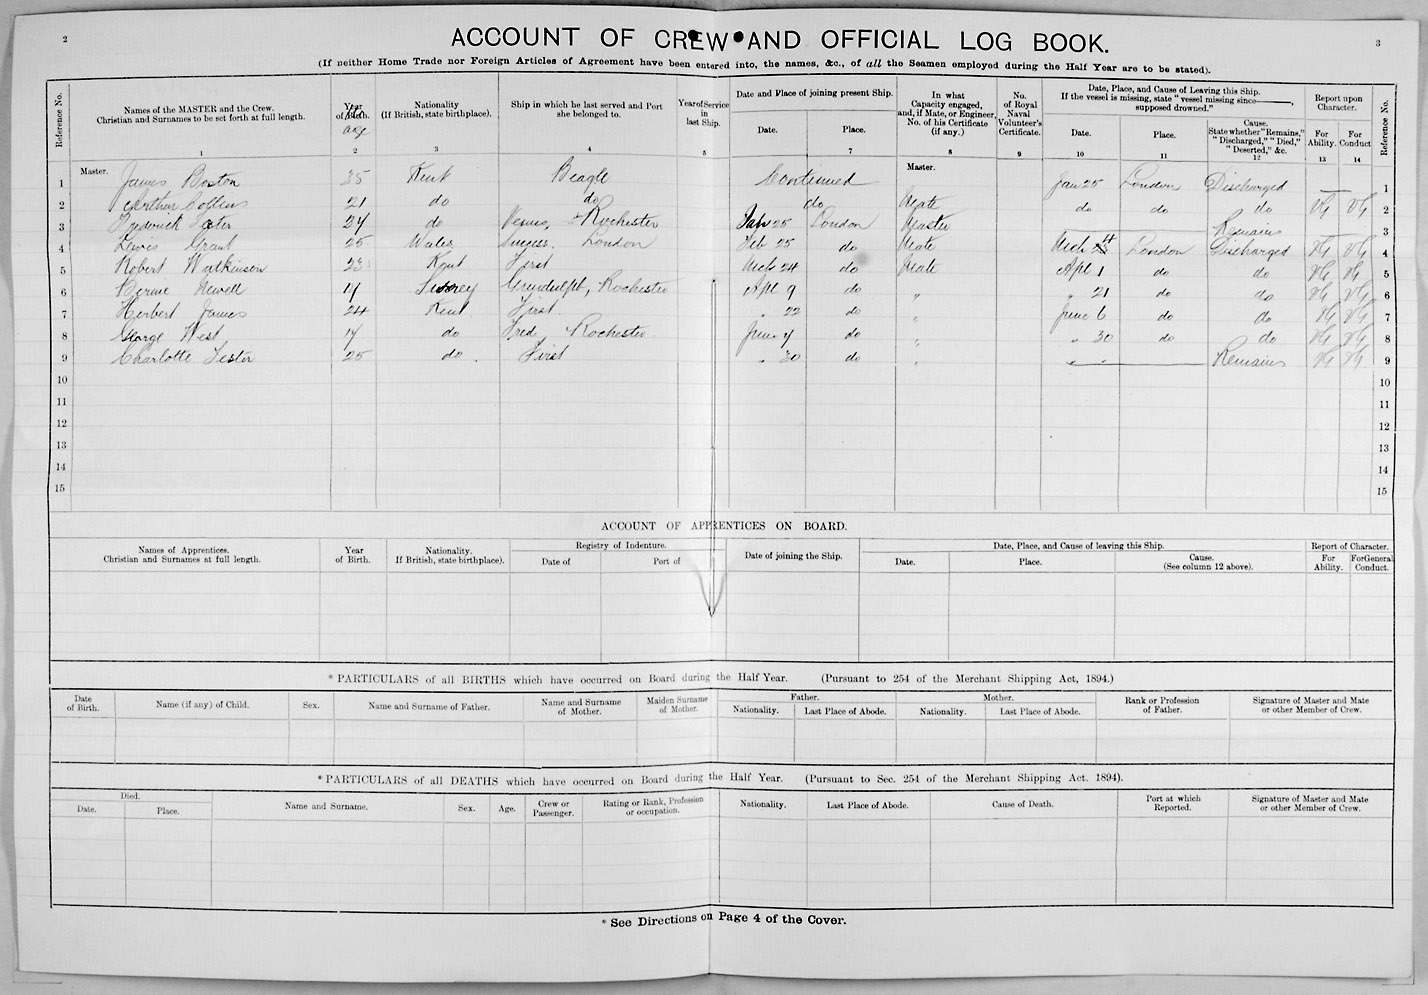 2
3
ACCOUNT OF CREW AND OFFICIAL LOG BOOK.
(If neither Home Trade nor Foreign Articles of Agreement have been entered into, the names, &c., of all the Seamen employed during the Half Year are to be stated).
Reference No.
Names of the MASTER and the Crew. Christian and Surnames to be set forth at full length.
Year of Birth. age
Nationality (If British, state birthplace).
Ship in which he last served and Port she belonged to.
Year of Service in last Ship.
Date and Place of joining present Ship.
Date.
Place.
In what Capacity engaged, and, if Mate, or Engineer, No. of his Certificate (if any.)
No. of Royal Naval Volunteer's Certificate.
Date, Place, and Cause of Leaving this Ship. If the vessel is missing, state "vessel missing since———, supposed drowned."
Date.
Place.
Cause. State whether "Remains," "Discharged," "Died," "Deserted," &c.
Report upon Character.
For Ability.
For Conduct
Reference No.
1 2 3 4 5 6 7 8 9 10 11 12 13 14
1 Master. James Boston 35 Kent Beagle Continued Master. Jan 25 London Discharged 1
2 Arthur Collins 21 do do do Mate do do do VG VG 2
3 Frederick 24 do Venus, Rochester Jan 25 London Master Remains 3
4 Lewis Grant 25 Wales Success. London Feb 25 do Mate Mch 14 London Discharged VG VG 4
5 Robert Watkinson 23 Kent First Mch 24 do Mate Apl 1 do do VG VG 5
6 Newell 19 Surrey Gundulph, Rochester Apl 9 do " " 21 do do VG VG 6
7 Herbert James 24 Kent First. " 22 do " June 6 do do VG VG 7
8 George West 19 do Fred, Rochester. June 7 do " " 30 do do VG VG 8
9 Charlotte Tester 25 do. First " 30 do " " " Remains VG VG 9
10 10
11 11
12 12
13 13
14 14
15 15
ACCOUNT OF APPRENTICES ON BOARD.
Names of Apprentices. Christian and Surnames at full length.
Year of Birth.
Nationality. If British, state birthplace).
Registry of Indenture.
Date of
Port of
Date of joining the Ship.
Date, Place, and Cause of leaving this Ship.
Date.
Place.
Cause. (See column 12 above).
Report of Character.
For Ability.
For General Conduct.
*PARTICULARS of all BIRTHS which have occurred on Board during the Half Year. (Pursuant to 254 of the Merchant Shipping Act, 1894.)
Date of Birth.
Name (if any) of Child.
Sex.
Name and Surname of Father.
Name and Surname of Mother.
Maiden Surname of Mother.
Father.
Nationality.
Last Place of Abode.
Mother.
Nationality.
Last Place of Abode.
Rank or Profession of Father.
Signature of Master and Mate or other Member of Crew.
*PARTICULARS of all DEATHS which have occurred on Board during the Half Year. (Pursuant to Sec. 254 of the Merchant Shipping Act. 1894).
Died.
Date.
Place.
Name and Surname.
Sex.
Age.
Crew or Passenger.
Rating or Rank, Profession or occupation.
Nationality.
Last Place of Abode.
Cause of Death.
Port at which Reported.
Signature of Master and Mate or other Member of Crew.
*See Directions on Page 4 of the Cover.